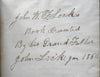 John W. Locke
Book Granted
By his Grand Father
John Locke Jan 186